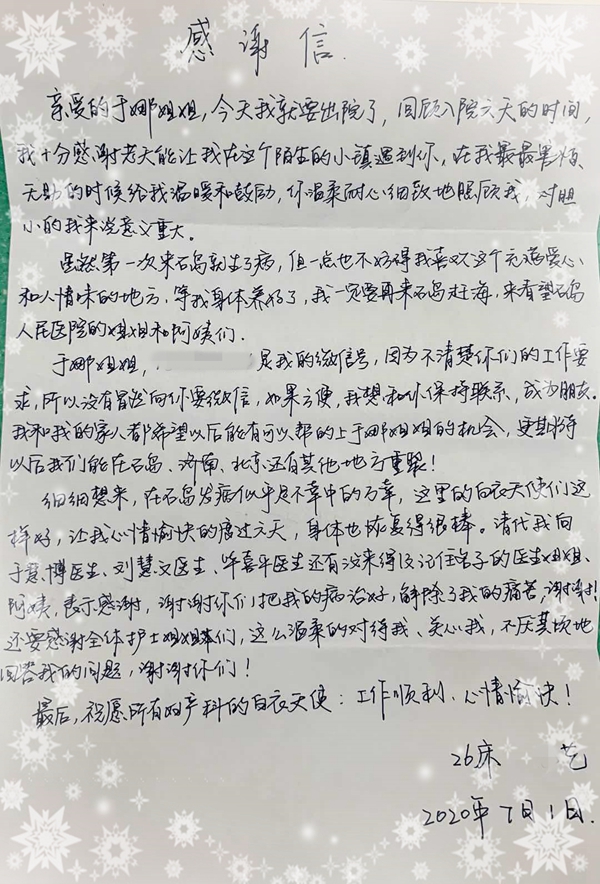 感谢信
亲爱的于娜姐姐，今天我就要出院了，回顾入院六天的时间，
我十分感谢老天能让我在这个陌生的小镇遇到你，在我最最黑烦、
无助的时候给我温暖和鼓励，你温柔耐心细致地照顾我，对胆
小的我来说意义重大。
虽然第一次来石岛就生了病，但一点也不妨碍我喜欢这个充满爱心
和人情味的地方，等我身体养好了，我一定要再来石岛赶海，来看望石岛
人民医院的姐姐和阿姨们．
于娜姐姐，是我的微信号，因为不清楚你们的工作要
求，所以没有冒昧向你要微信，如果方便，我想和你保持联系，成为朋友。
我和我的家人都希望以后能有可以帮的上于娜姐姐的机会，更期待
以后我们能在石岛、济南、北京还有其他地方重聚！
细细想来，在石岛发病似乎是不幸中的万幸，这里的白衣天使们这
样好，让我心情愉快的度过六天，身体也恢复得很棒。请代我向
于慧博医生、刘慧文医生、毕喜平医生还有没来得及记住名字的医生姐姐、
阿姨，表示感谢，谢谢你们把我的病治好，解除了我的痛苦，谢谢！
还要感谢全体护士姐姐们，这么温柔的对待我、关心我，不厌其烦地
回答我的问题，谢谢你们！
最后，祝愿所有妇产科的白衣天使：工作顺利、心情愉快！
26床 艺
2020年7月1日．